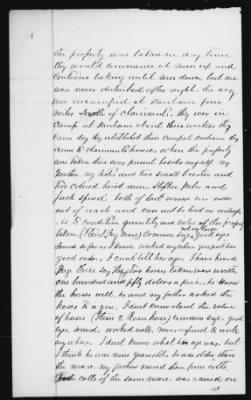 the property was taken in day time
they would commence at sun up and
continue taking until sun down, but we
was never disturbed after night. the army
was encamped at Durham four
miles South of claimant's. they were in
camp at Durham about three weeks they
came day they established their camp at Durham they
came to claimants house, when the property
was taken there was present besides myself my
Mother, my sister and two small brothers and
two colored hired men
both of last name are now
out of reach and cannot be had as witnesses
As to condition quantity and value of the property
taken (Item 1, Bay Mare) Common size, good eyes
Sound as far as I know, worked anywhere respect her
good order. I cant tell her age. I have heard
say the two horses taken was worth
one hundred and fifty dollars a piece. he knew
the horses well, he and my father worked the
horses to a gin. I dont know about the value
of horses (Item 2. Roan horse) common size. good
eyes. Sound, worked well. never refused to work
any where. I dont know what his age was. but
I think he was nine years old. he was older than
the mare. my father owned them from colts.
colts of the same mare. was raised on